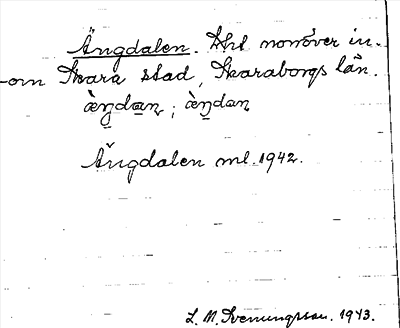 Ängdalen. Hst norröver in-
om Skara stad, Skaraborgs län.
æ̀ŋdan; æ̀ŋdan
Ängdalen ml. 1942.
L. M. Svenungsson. 1943.